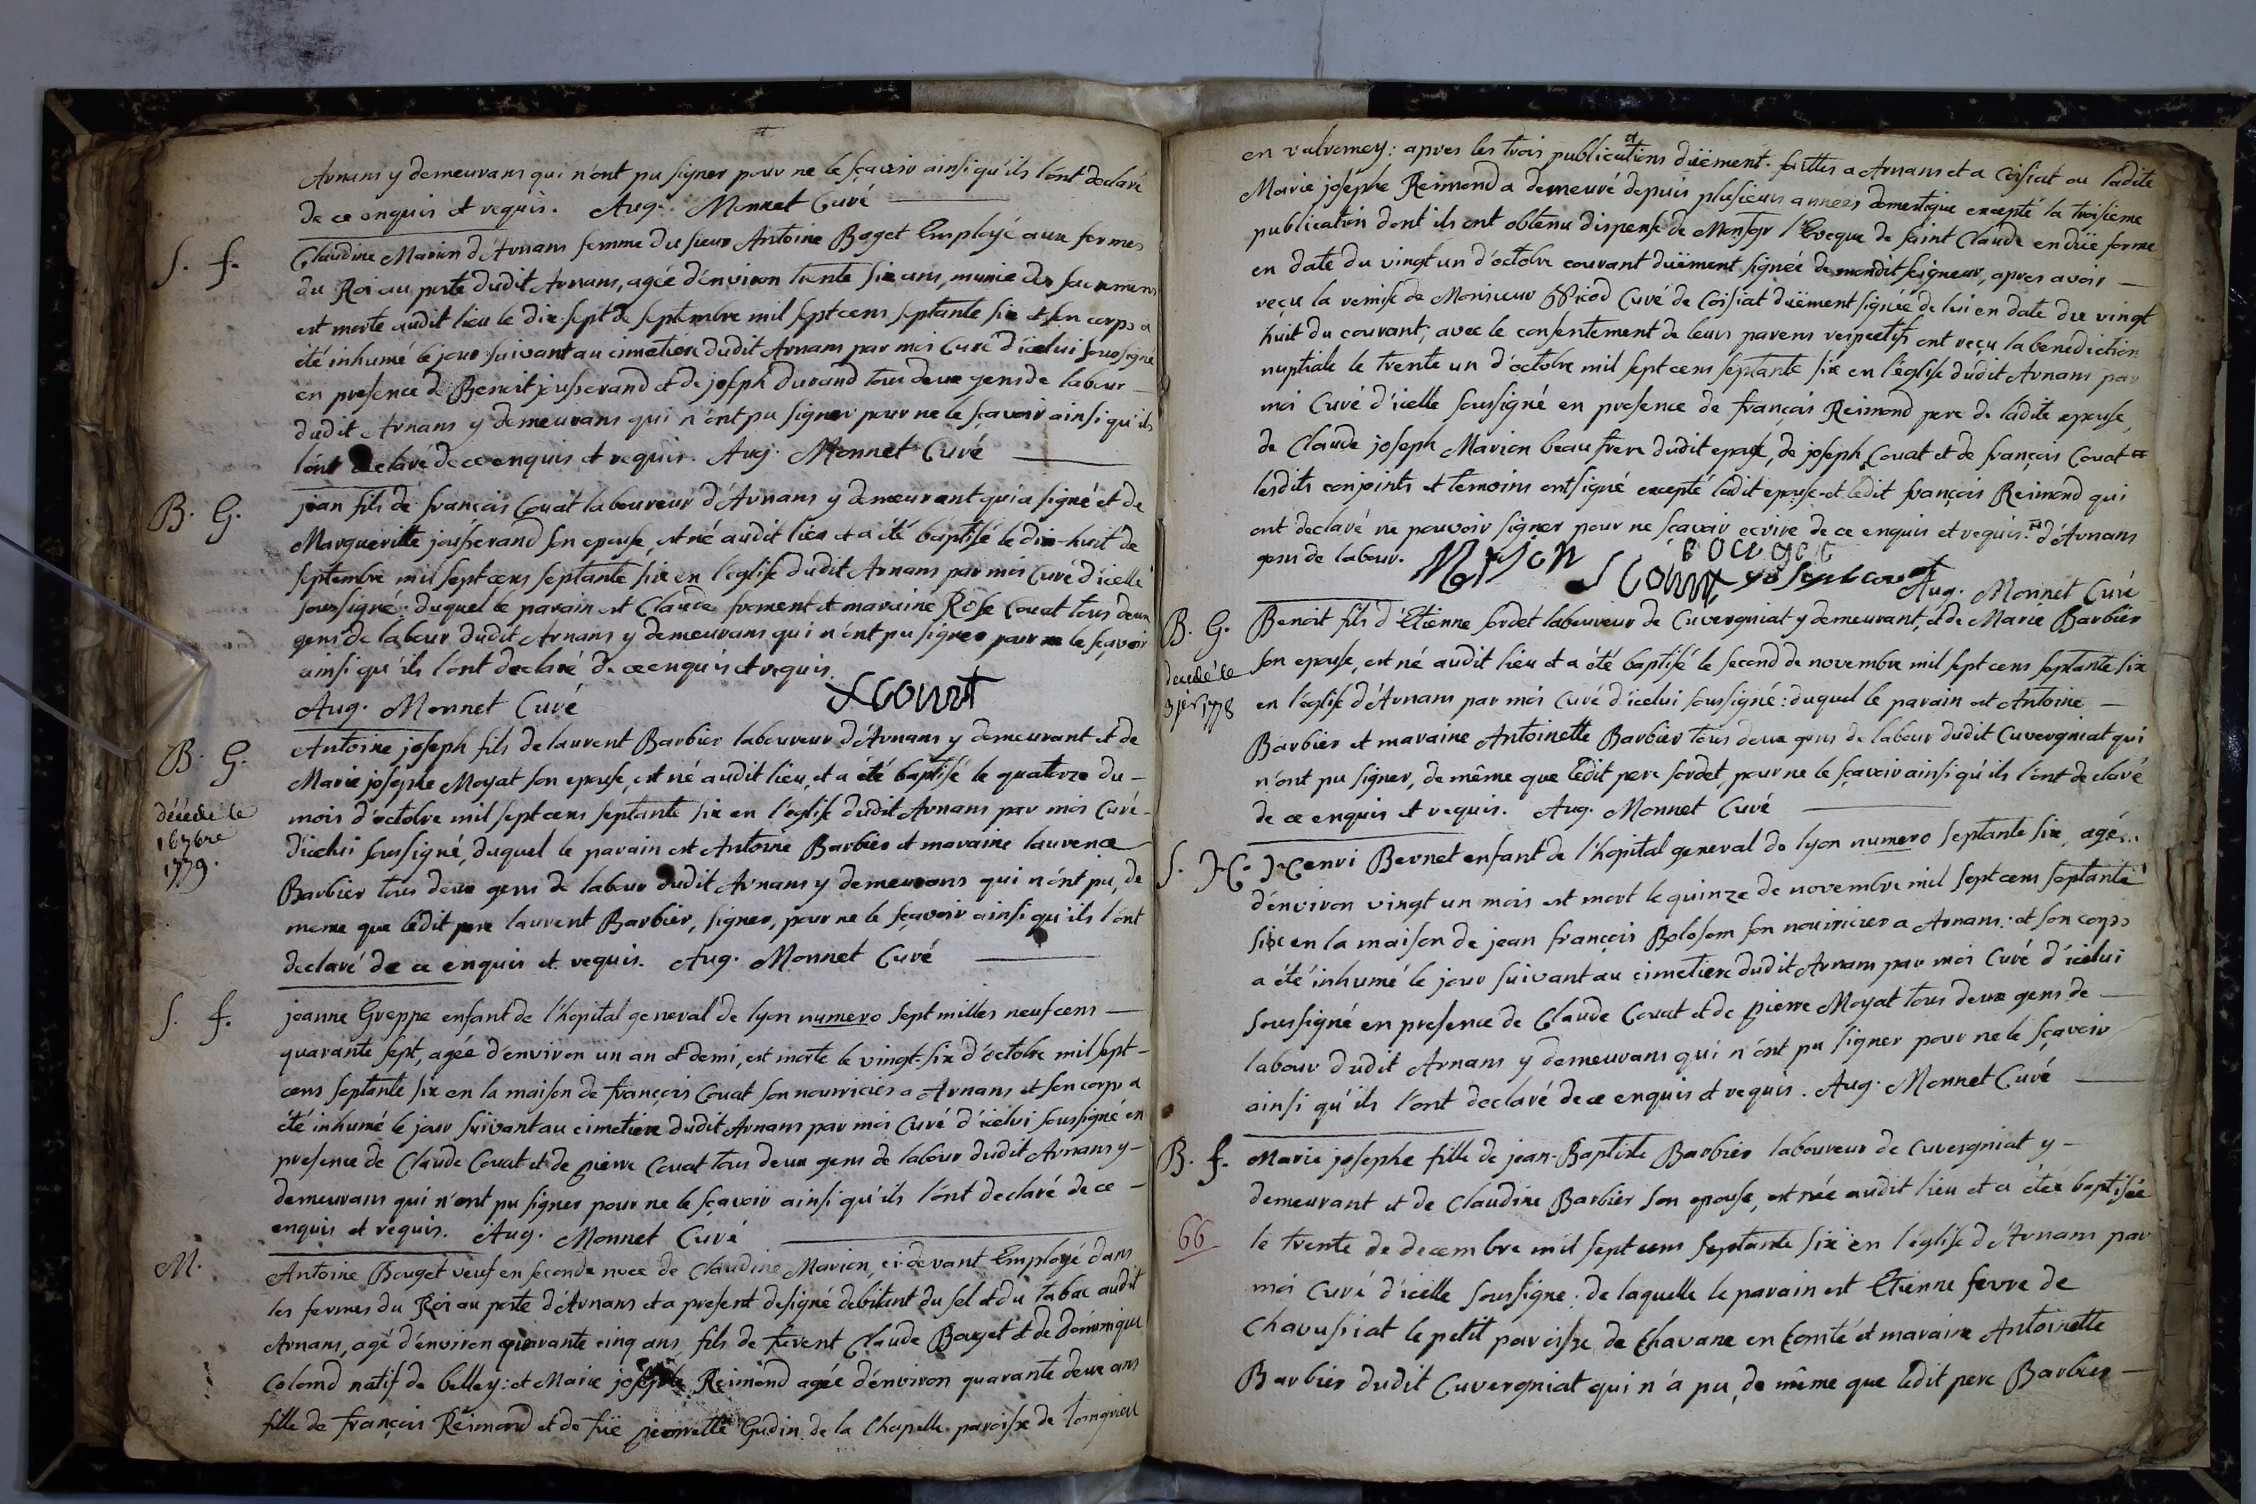 Arnans y demeurans qui n'ont pu signer pour ne le sçavoir ainsi qu'ils l'ont declaré
de ce enquis et requis. Aug. Monnet Curé
S. f. Claudine Marion d'Arnans femme du sieur Antoine Boget Employé aux fermes
du Roi au poste dudit Arnans, agée d'environ trente six ans, munie des sacremens
est morte audit lieu le dix-sept de septembre mil sept cens septante six et son corps a
été inhumé le jour suivant au cimetiere dudit Arnans par moi Curé d'icelui soussigné
en presence de Benoit jusserand et de joseph durand tous deux gens de labour
dudit Arnans y demeurans qui n'ont pu signer pour ne le sçavoir ainsi qu'ils
l'ont declaré de ce enquis et requis. Aug. Monnet Curé
B. G. jean fils de françois Couat laboureur d'Arnans y demeurant qui a signé et de
Margueritte jousserand son epouse, est né audit lieu et a été baptisé le dix-huit de
septembre mil sept cens septante six en l'eglise dudit Arnans par moi Curé d'icelle
soussigné: duquel le parain est Claude froment et maraine Rose Couat tous deux
gens de labour dudit Arnans y demeurans qui n'ont pu signer pour ne le sçavoir
ainsi qu'ils l'ont declaré de ce enquis et requis.
Aug. Monnet Curé
B. G. Antoine joseph fils de laurent Barbier laboureur d'Arnans y demeurant et de
Marie josephe Moyat son epouse, est né audit lieu, et a été baptisé le quatorze du
décédé le
16 7bre
1779.
mois d'octobre mil sept cens septante six en l'eglise dudit Arnans par moi Curé
d'icelui soussigné, duquel le parain est Antoine Barbier et maraine laurence
Barbier tous deux gens de labour dudit Arnans y demeurans qui n'ont pu, de
meme que ledit pere laurent Barbier, signer, pour ne le sçavoir ainsi qu'ils l'ont
declaré de ce enquis et requis. Aug. Monnet Curé
S. f. jeanne Greppe enfant de l'hopital general de lyon numero sept milles neuf cens
quarante sept, agée d'environ un an et demi, est morte le vingt-six d'octobre mil sept
cens septante six en la maison de françois Couat son nourricier a Arnans et son corps a
été inhumé le jour suivant au cimetiere dudit Arnans par moi Curé d'icelui soussigné en
presence de Claude Couat et de pierre Couat tous deux gens de labour dudit Arnans y
demeurans qui n'ont pu signer pour ne le sçavoir ainsi qu'ils l'ont declaré de ce
enquis et requis. Aug. Monnet Curé
M. Antoine Bouget veuf en seconde noce de Claudine Marion, ci-devant Employé dans
les fermes du Roi au poste d'Arnans et a present designé debitant du sel et du tabac audit
Arnans, agé d'environ quarante cinq ans, fils de furent Claude Bouget et de dominique
Colomd natif de belley: et Marie josephe Reimond agée d'environ quarante deux ans
fille de françois Reimond et de füe pierrette Gudin de la Chapelle paroisse de
en valromey: apres les trois publications düement faittes a Arnans et a Coisiat ou ladite
Marie josephe Reimond a demeuré depuis plusieurs années domestique excepté la troisieme
publication dont ils ont obtenu dispense de Monsgr l'Eveque de saint Claude en düe forme
en date du vingt un d'octobre courant düement signée de mondit seigneur, apres avoir
reçu la remise de Monsieur Picod Curé de Coisiat düement signée de lui en date du vingt
huit du courant; avec le consentement de leurs parens respectifs ont reçu la benediction
nuptiale le trente un d'octobre mil sept cens septante six en l'église dudit Arnans par
moi Curé d'icelle soussigné en presence de françois Reimond pere de ladite epouse,
de Claude joseph Marion beau frere dudit epoux, de joseph Couat et de françois Couat
lesdits conjoints et temoins ont signé excepté ladit epouse et ledit françois Reimond qui
ont declaré ne pouvoir signer pour ne sçavoir ecrire de ce enquis et requis. d'Arnans
gens de labour. joseph couat
Aug. Monnet Curé
B. G. Benoit fils d'Etienne sordet laboureur de Cuvergniat y demeurant, et de Marie Barbier
son epouse, est né audit lieu et a été baptisé le second de novembre mil sept cens septante six
decedé le
3 jer 1778
en l'église d'Arnans par moi Curé d'icelui soussigné: duquel le parain est Antoine
Barbier et maraine Antoinette Barbier tous deux gens de labour dudit Cuvergniat qui
n'ont pu signer, de même que ledit pere sordet, pour ne le sçavoir ainsi qu'ils l'ont declaré
de ce enquis et requis. Aug. Monnet Curé
S. H. Henri Bernet enfant de l'hopital general de lyon numero septante six, agé
d'environ vingt un mois est mort le quinze de novembre mil sept cens septante
six en la maison de jean françois Bolosom son nouriricier a Arnans: et son corps
a été inhumé le jour suivant au cimetiere dudit Arnans par moi Curé d'icelui
soussigné en presence de Claude Couat et de pierre Moyat tous deux gens de
labour dudit Arnans y demeurans qui n'ont pu signer pour ne le sçavoir
ainsi qu'ils l'ont declaré de ce enquis et requis. Aug. Monnet Curé
B. f. Marie josephe fille de jean-Baptiste Barbier laboureur de Cuvergniat y
demeurant et de Claudine Barbier son epouse, est née audit lieu et a étée baptisée
66 le trente de decembre mil sept cens septante six en l'église d'Arnans par
moi Curé d'icelle soussigné: de laquelle le parain est Etienne fevre de
Chavussiat le petit paroisse de Chavane en Comté et maraine Antoinette
Barbier dudit Cuvergniat qui n'a pu, de même que ledit pere Barbier